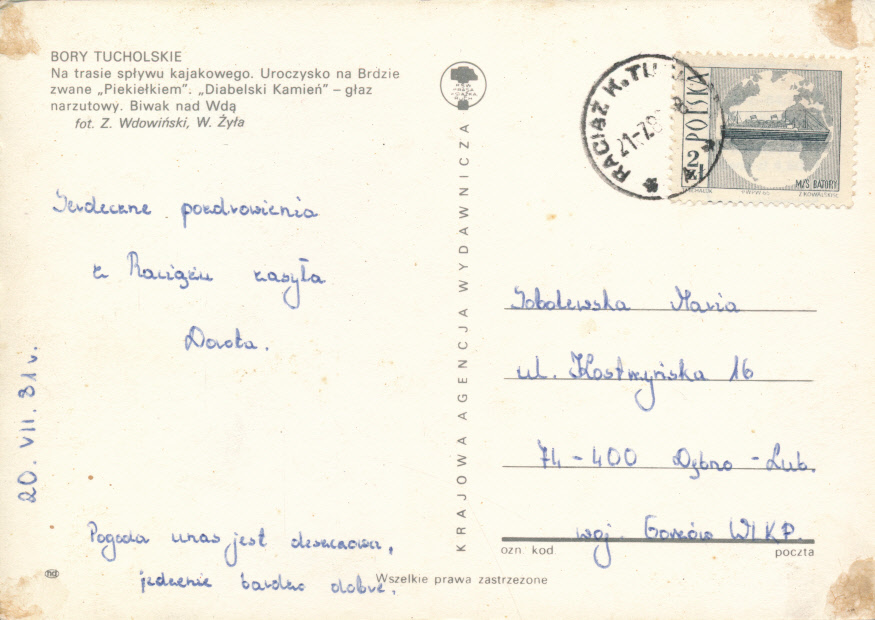 BORY TUCHOLSKIE
Na trasie spływu kajakowego. Uroczysko na Brdzie
zwane „Piekiełkiem”. „Diabelski Kamień” – głaz
narzutowy. Biwak nad Wdą
fot. Z. Wdowiński, W. Żyła
Serdeczne pozdrowienia
z Raciąża zasyła
Dorota.
20. VII. 81 r.
Pogoda unas jest deszczowa,
jedzenie bardzo dobre.
KRAJOWA AGENCJA WYDAWNICZA
RACIĄŻ K. TU
21-7.8
POLSKA
2 zł
M/S BATORY
Z. KOWALSKI
Sobolewska Maria
ul. Kostrzyńska 16
74-400 Dębno-Lub.
woj. Gorzów WLKP.
ozn kod
poczta
Wszelkie prawa zastrzeżone